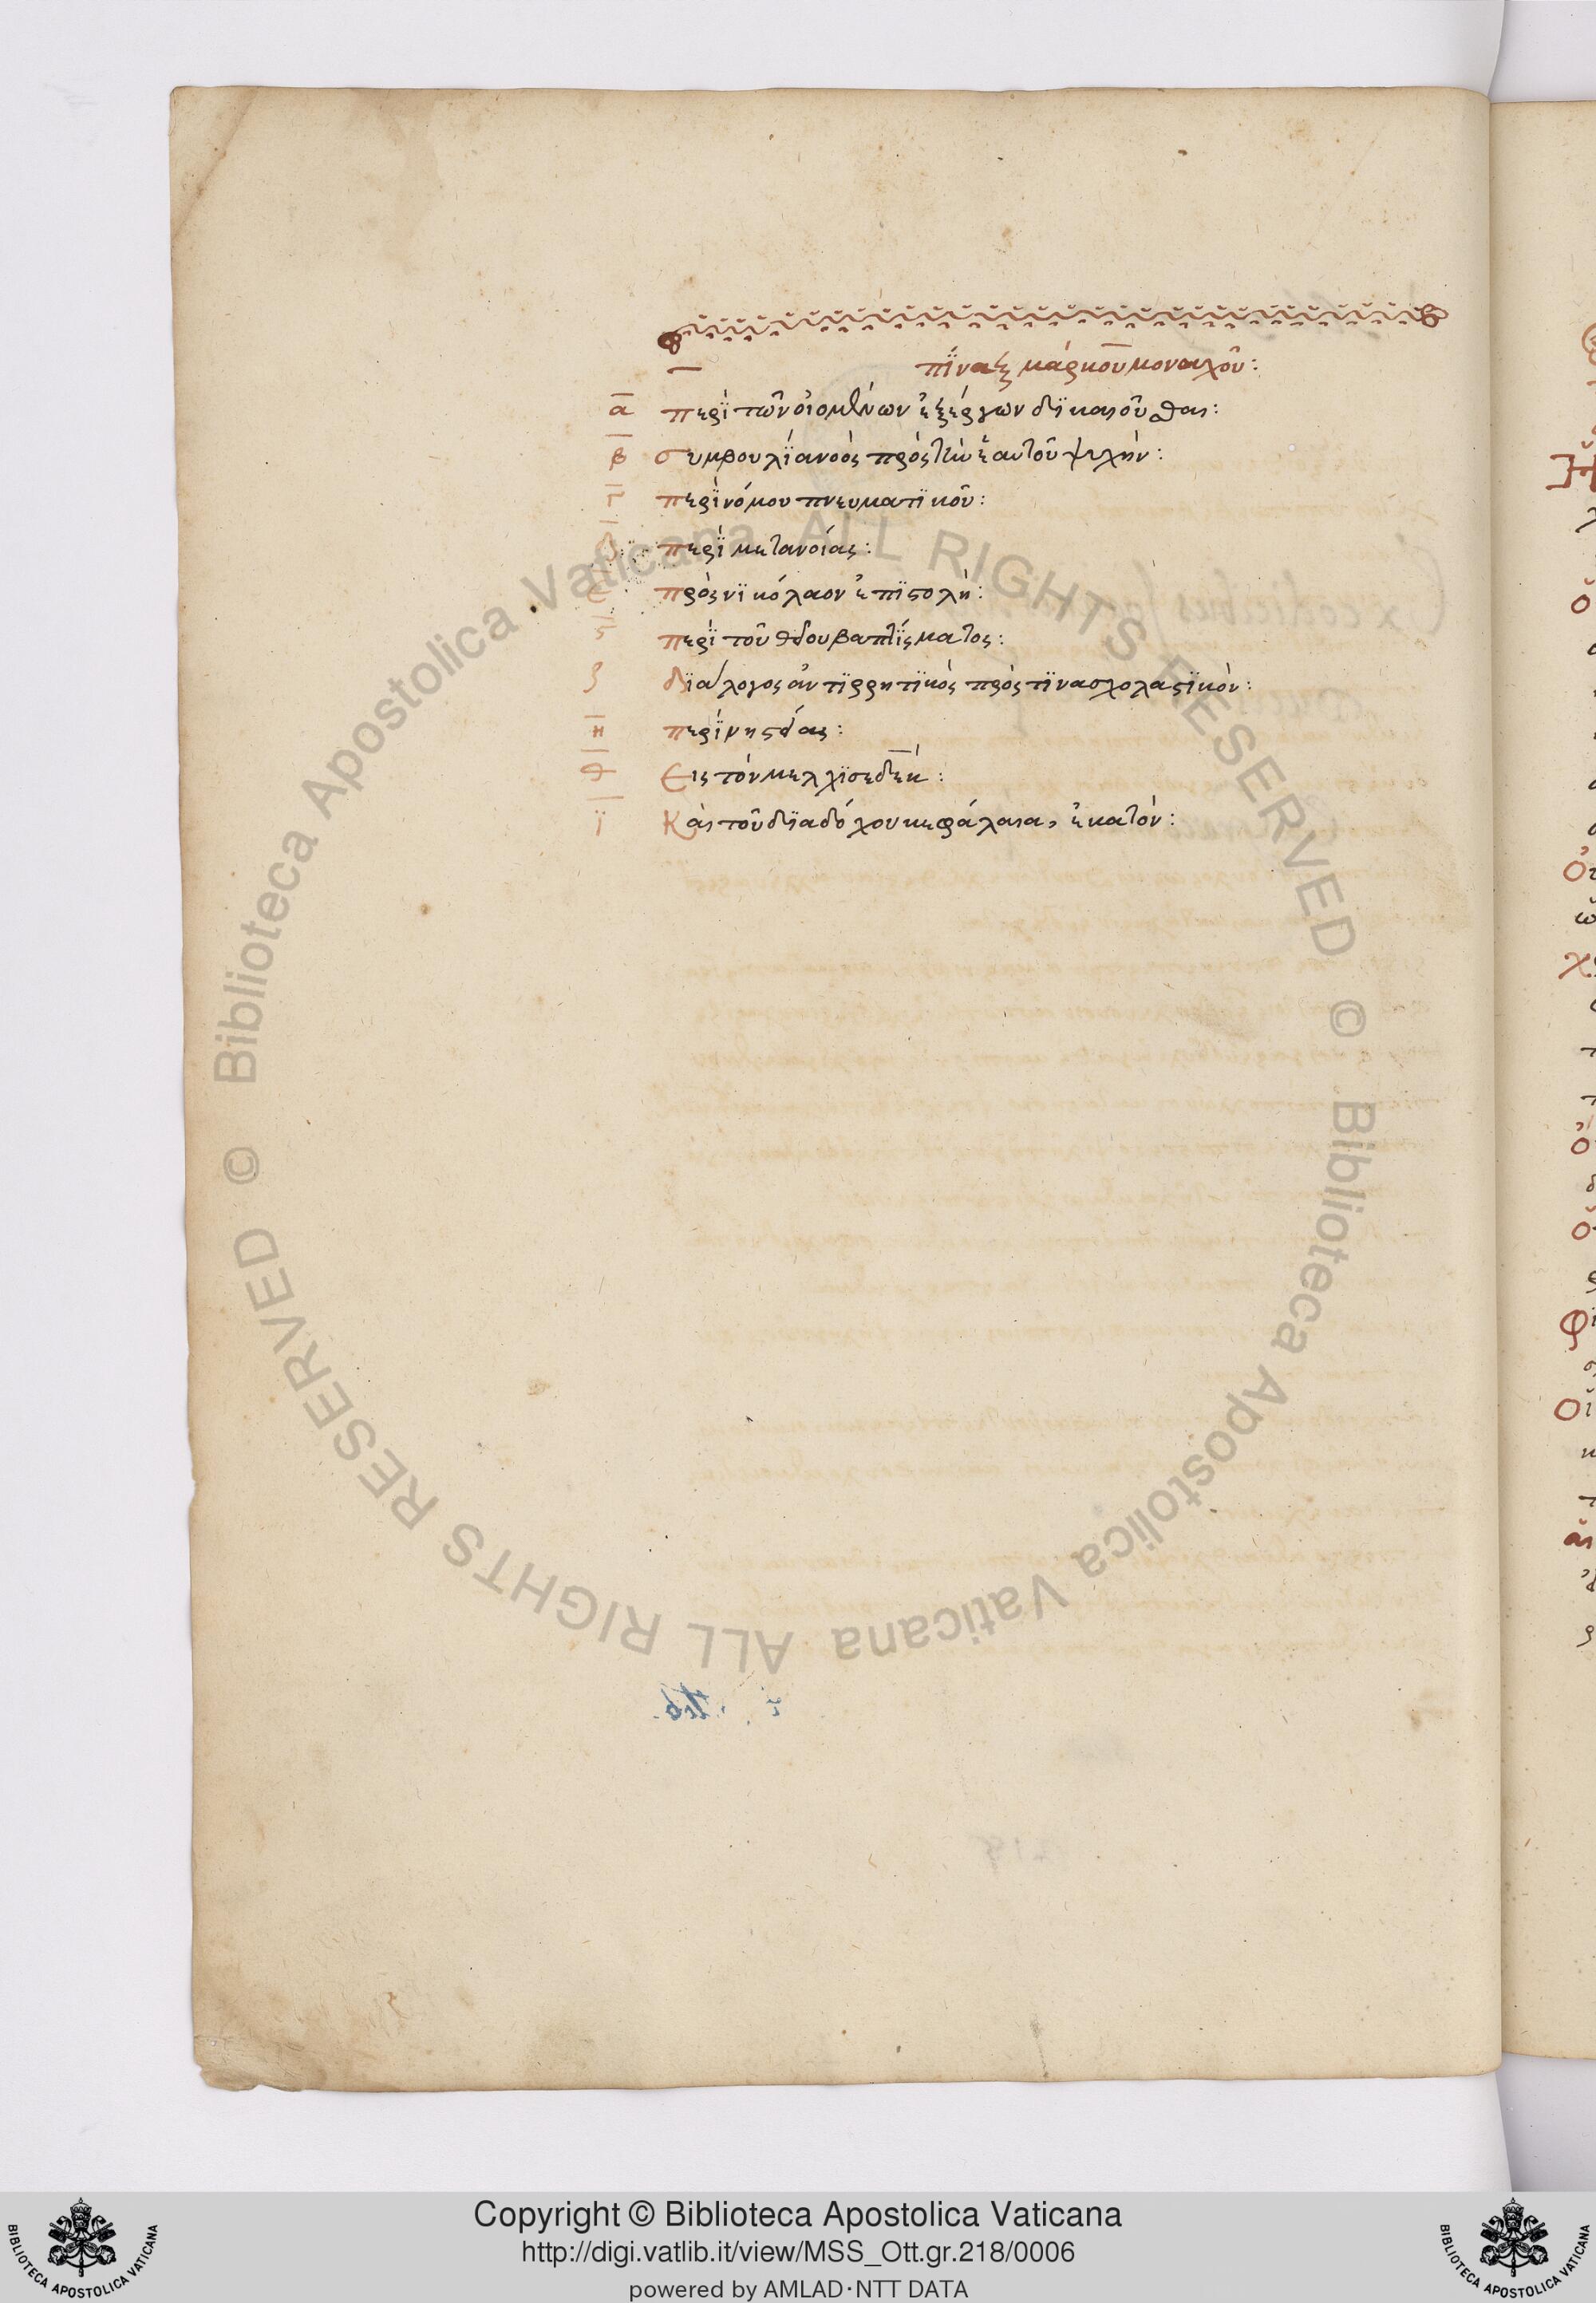 πΐναξ μάρκου μοναχοῦ:
α περΐ τῶν οἰομένων ἐξέργων δϊκαιοῦσθαι:
β συμβουλΐα νοὸς πρὸς τὴν ἑαυτοῦ ψυχὴν:
γ περΐ νόμου πνευματϊκοῦ:
δ περΐ μετανοίας:
ε πρὸς νϊκόλαον ἐπϊστολὴ:
ς περΐ τοῦ θείου βαπτΐσματος:
ζ δϊάλογος ἀντϊρρητϊκὸς πρὸς τϊνα σχολαστϊκὸν:
η περΐ νηστείας:
θ Εις τὸν μελχϊσεδὲκ:
ϊ Κὰι τοῦ δϊαδόχου κεφάλαια, ἑκατὸν:
© Biblioteca Apostolica Vaticana ALL RIGHTS RESERVED
© Biblioteca Apostolica Vaticana ALL RIGHTS RESERVED
Copyright © Biblioteca Apostolica Vaticana
http://digi.vatlib.it/view/MSS_Ott.gr.218/0006
powered by AMLAD·NTT DATA
BIBLIOTECA APOSTOLICA VATICANA
BIBLIOTECA APOSTOLICA VATICANA